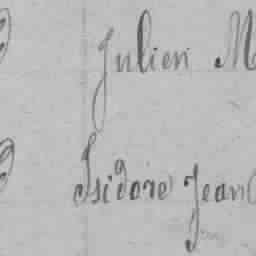 Julien M
Isidore Jean